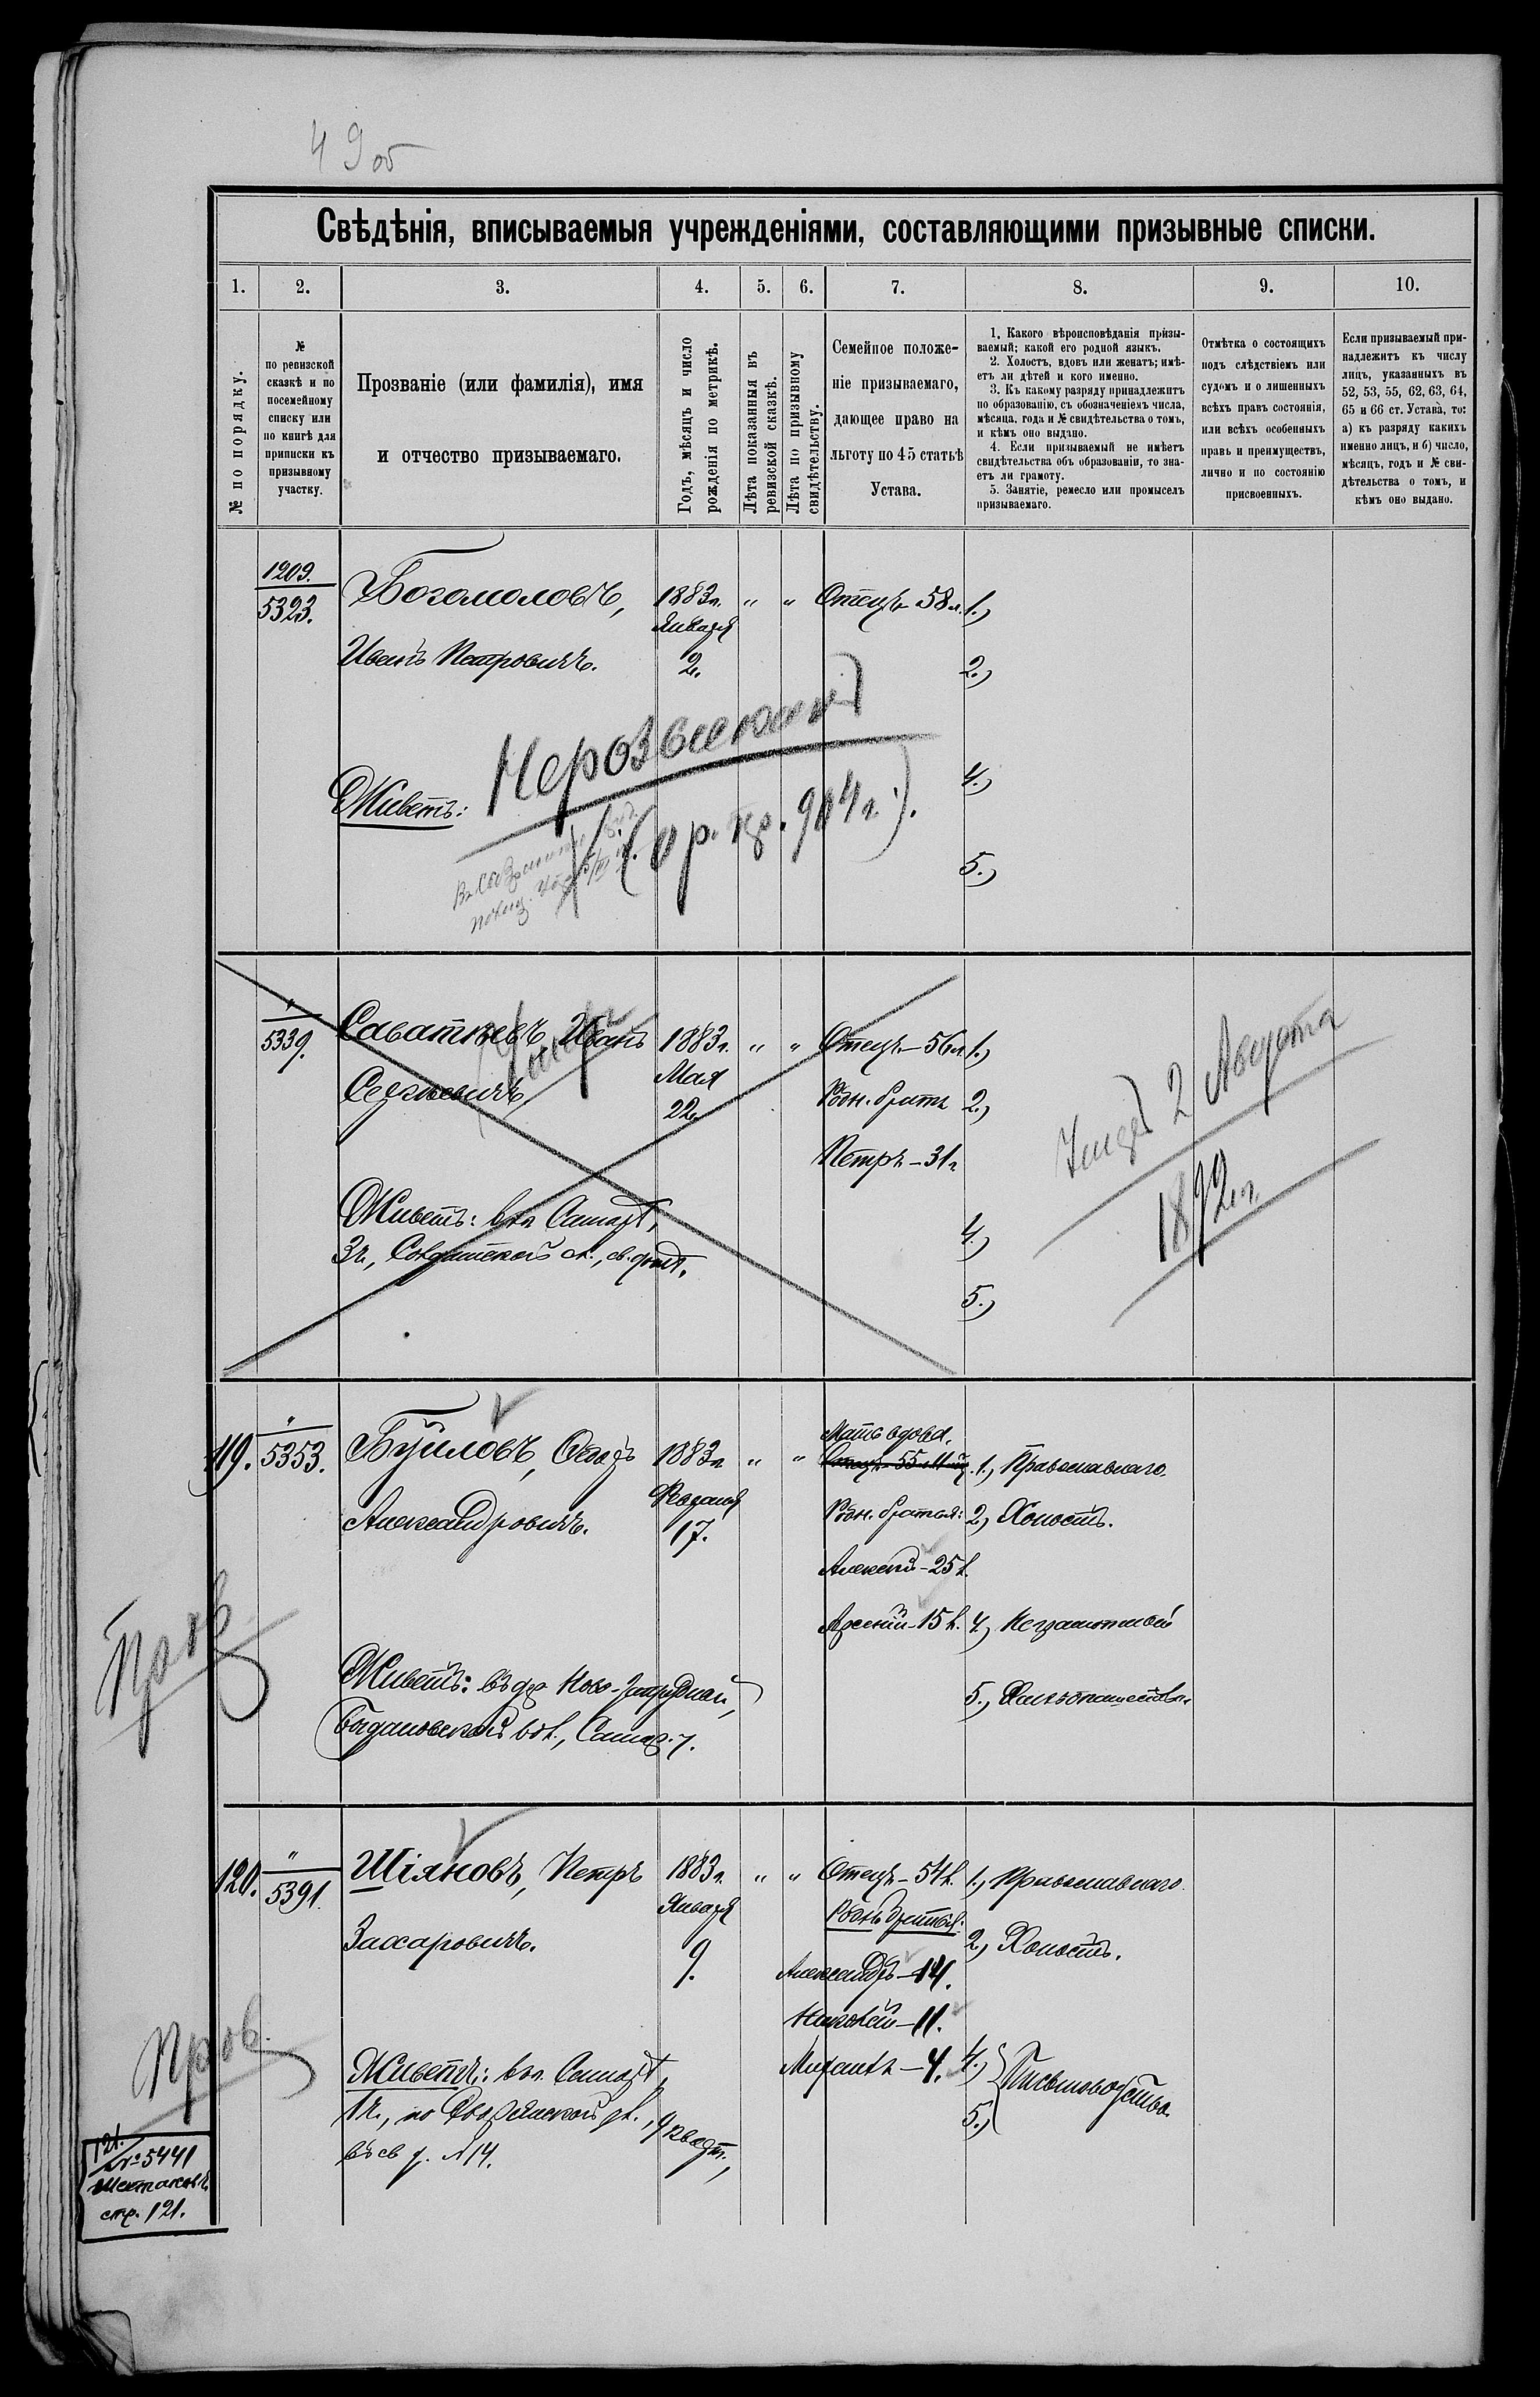 49 об
Свѣдѣнія, вписываемыя учрежденіями, составляющими призывные списки.
1. 2. 3. 4. 5. 6. 7. 8. 9. 10.
№ по порядку.
№
по ревизской
сказкѣ и по
посемейному
списку или
по книгѣ для
приписки къ
призывному
участку.
Прозваніе (или фамилія), имя
и отчество призываемаго.
Годъ, мѣсяцъ и число
рожденія по метрикѣ.
Лѣта показанныя въ
ревизской сказкѣ.
Лѣта по призывному
свидѣтельству.
Семейное положе-
ніе призываемаго,
дающее право на
льготу по 45 статьѣ
Устава.
1. Какого вѣроисповѣданія призы-
ваемый; какой его родной языкъ.
2. Холостъ, вдовъ или женатъ; имѣ-
етъ ли дѣтей и кого именно.
3. Къ какому разряду принадлежитъ
по образованію, съ обозначеніемъ числа,
мѣсяца, года и № свидѣтельства о томъ,
и кѣмъ оно выдано.
4. Если призываемый не имѣетъ
свидѣтельства объ образованіи, то зна-
етъ ли грамоту.
5. Занятіе, ремесло или промыселъ
призываемаго.
Отмѣтка о состоящихъ
подъ слѣдствіемъ или
судомъ и о лишенныхъ
всѣхъ правъ состоянія,
или всѣхъ особенныхъ
правъ и преимуществъ,
лично и по состоянію
присвоенныхъ.
Если призываемый при-
надлежитъ къ числу
лицъ, указанныхъ въ
52, 53, 55, 62, 63, 64,
65 и 66 ст. Устава, то:
а) къ разряду какихъ
именно лицъ, и б) число,
мѣсяцъ, годъ и № сви-
дѣтельства о томъ, и
кѣмъ оно выдано.
1209.
5323.
Богомоловъ,
Иванъ Петровичъ.
1883 г.
Января
2.
" "
Отецъ - 58 л.
1.)
2.)
4.)
5.)
Живетъ:
(о р. пр. 904 г.).
"
5339.
Саватѣевъ, Иванъ
Сергѣевичъ.
1883 г.
Мая
22.
" "
Отецъ - 56 л.
Родн. братъ
Петръ - 31 г
1.)
2.)
4.)
5.)
Живетъ: въ г. Самарѣ,
3 ч.,
Умеръ 2 Августа
1892 г.
119.
"
5353.
Буйловъ, Ѳедоръ
Александровичъ.
1883 г.
Февраля
17.
" "
Мать вдова.
Родн. братья:
Алексѣй - 25 л.
Арсеній - 15 л.
1.) Православнаго.
2.) Холостъ.
4.) Неграмотный
5.) Хлѣбопашествомъ
Живетъ: въ дер. Ново-Запрудной,
Богдановской вол., Самар. у.
Пров
120.
"
5391.
Шіяновъ, Петръ
Захаровичъ.
1883 г.
Января
9.
" "
Отецъ - 54 л.
Родн. братья:
Александръ - 14.
Николай - 11.
Михаилъ - 4.
1.) Православнаго.
2.) Холостъ.
4.)
5.) Письмоводство.
Живетъ: въ г. Самарѣ,
1 ч., по Дворянской ул.,
въ св. д. №14.
Пров.
121.
№ 5441
Шестаковъ
стр. 121.